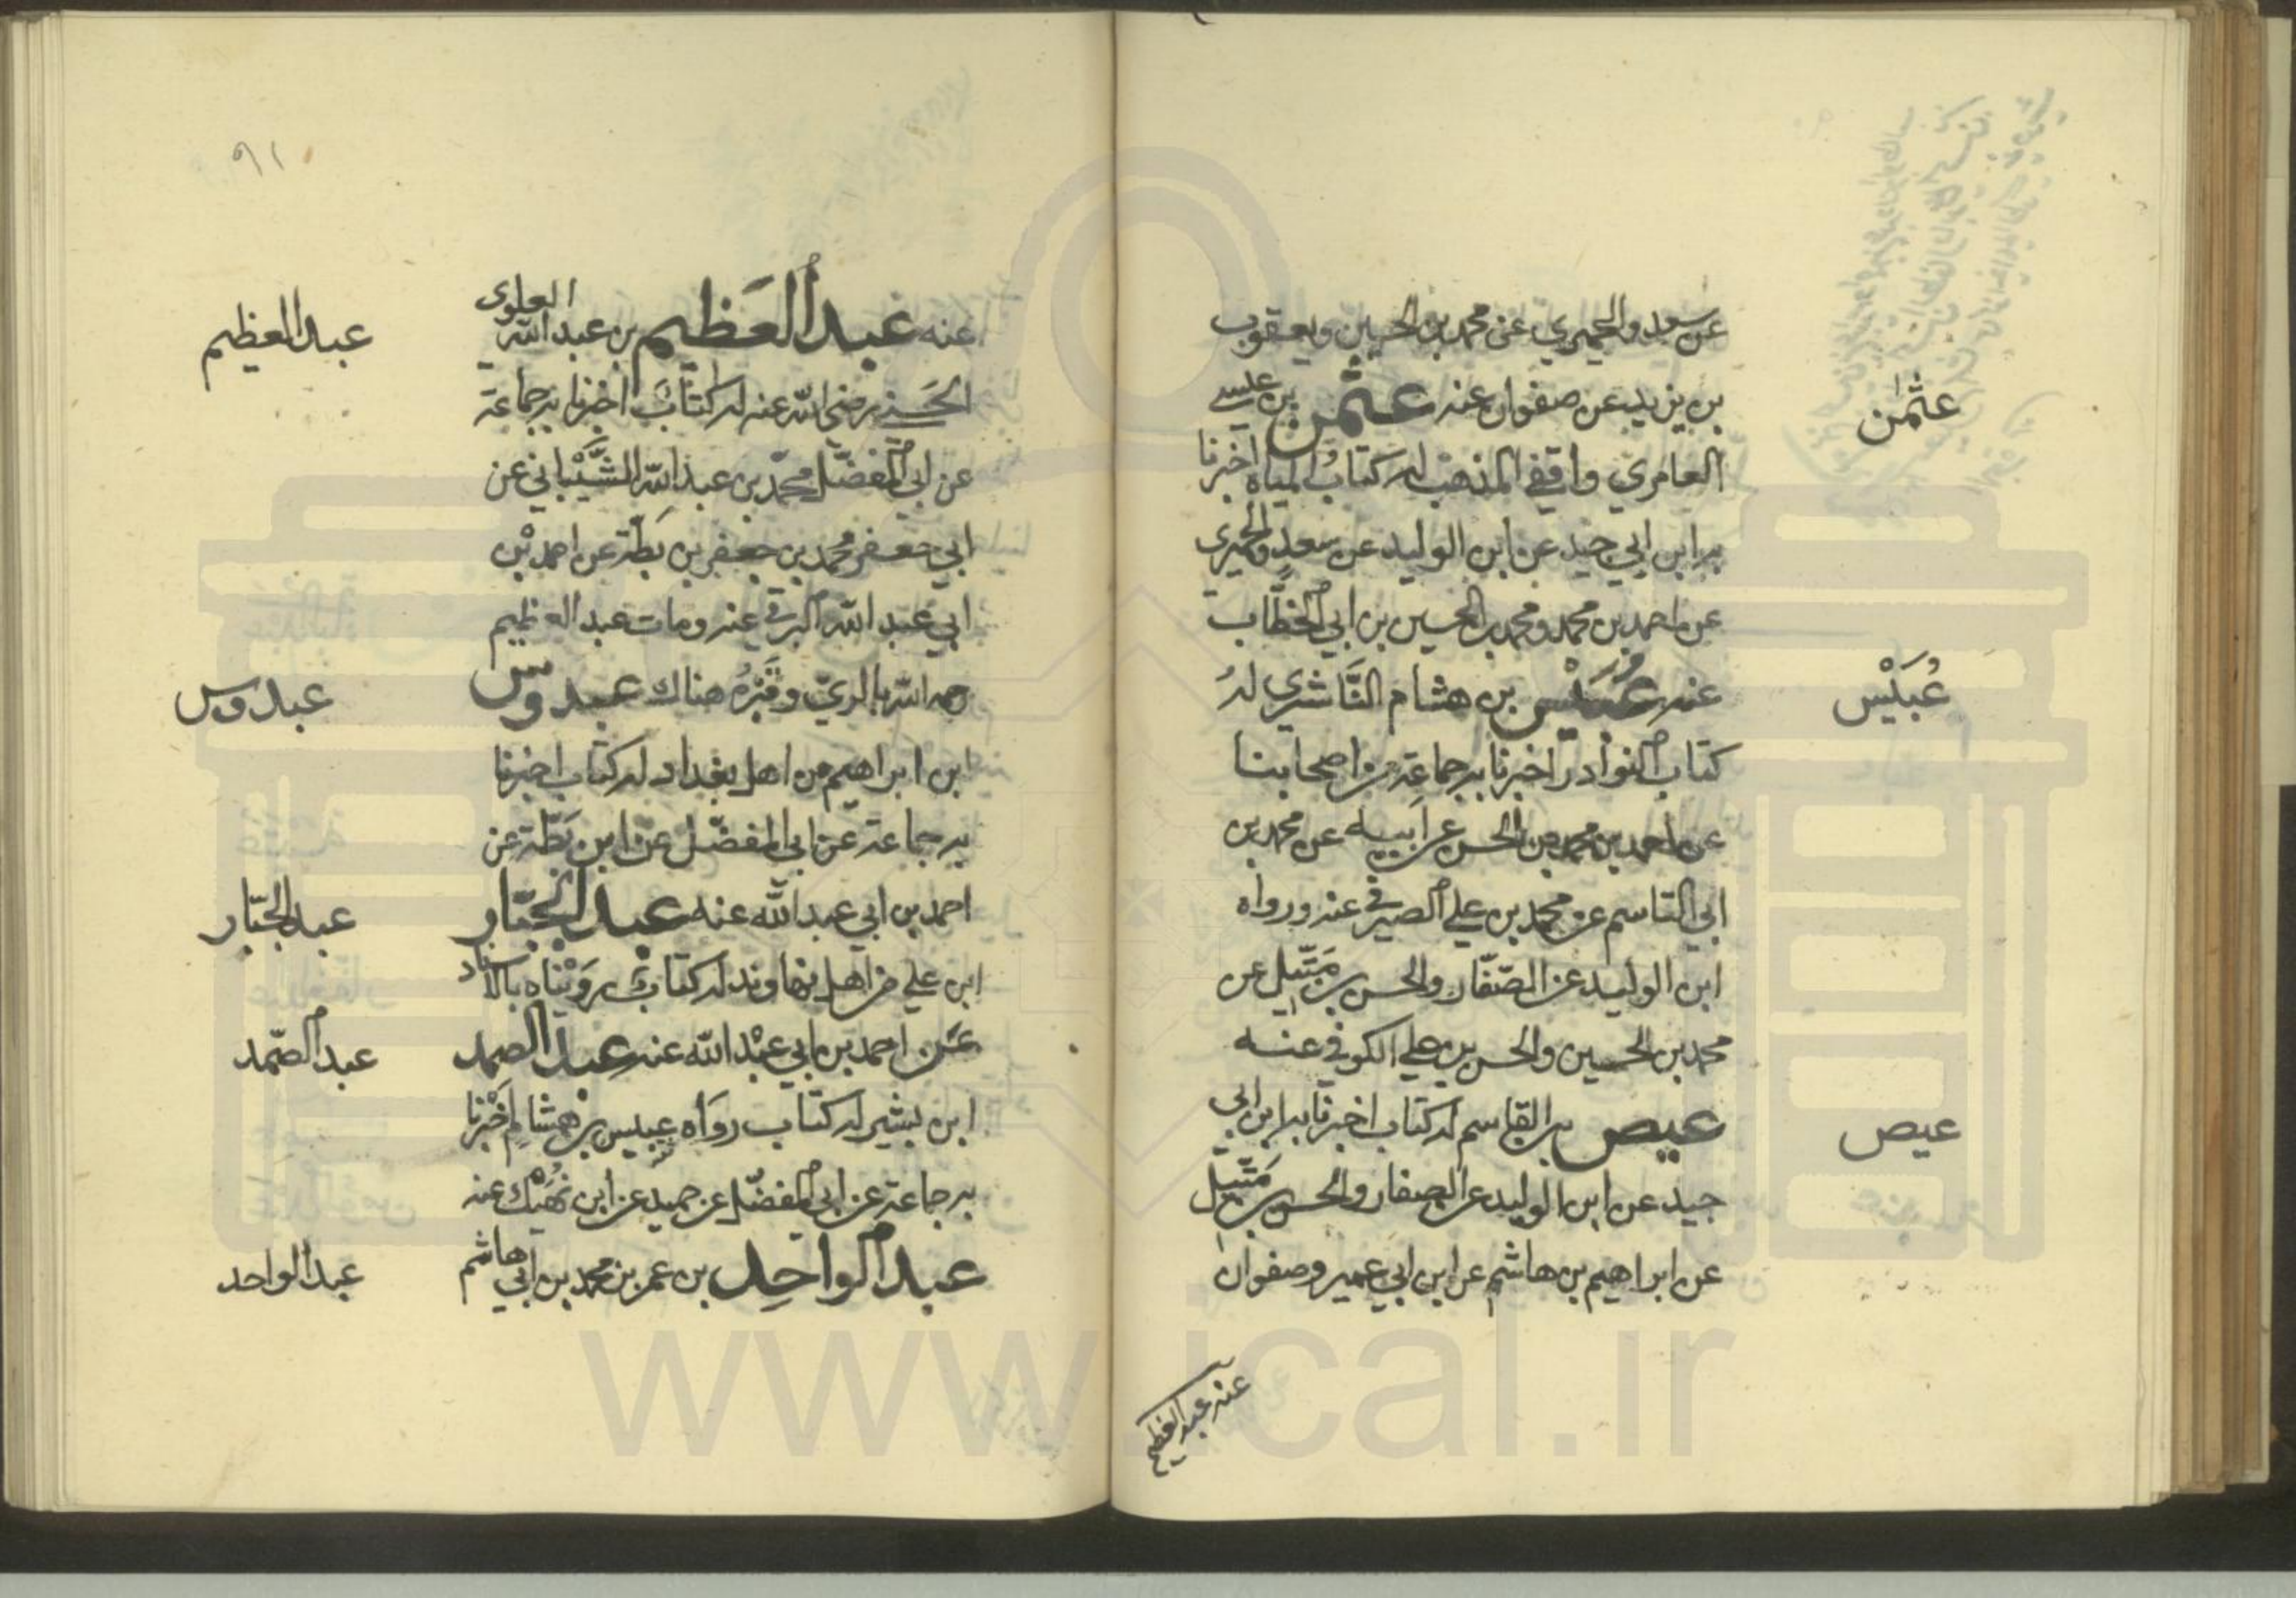 عن سعد والحميري عن محمد بن الحسين ويعقوب
بن يزيد عن صفوان عنه عثمن بن عيسى
العامري واقفي المذهب له كتاب المياه اخبرنا
به ابن ابي جيد عن ابن الوليد عن سعد والحميري
عن احمد بن محمد ومحمد بن الحسين بن ابي الخطّاب
عنه عُبَيْس بن هشام النَّاشري لهُ
كتاب النوادر اخبرنا به جماعة من اصحابنا
عن احمد بن محمد بن الحسن عن ابيه عن محمد بن
ابي القاسم عن محمد بن علي الصيرفي عنه ورواه
ابن الوليد عن الصّفّار والحسن بن مَتّيل عن
محمد بن الحسين والحسن بن علي الكوفي عنه
عيص بن القاسم له كتاب اخبرنا به ابن ابي
جيد عن ابن الوليد عن الصفار والحسن بن مَتّيل
عن ابراهيم بن هاشم عن ابن ابي عمير وصفوان
عنه عبد العظيم
عثمٰن
عُبَيْس
عيص
٩١
عنه عبد العَظيم بن عبد الله العلوي
الحَسَني رضي الله عنه له كتابٌ اخبرنا به جماعة
عن ابي المفضّل محمّد بن عبد الله الشَّيْباني عن
ابي جعفر محمد بن جعفر بن بَطّة عن احمد بْن
ابي عبد الله البرقي عنه ومات عبد العظيم
رحمه الله بالريّ وقَبْرُه هناك عبدوس
ابن ابراهيم من اهل بغداد له كتاب اخبرنا
به جماعة عن ابي المفضّل عن ابن بَطّة عن
احمد بن ابي عبد الله عنه عبد الجبّار
ابن علي من اهل نهاوند له كتابٌ رَوَيْناه بالاسناد
عن احمد بن ابي عبْد الله عنه عبد الصمد
ابن بشير له كتاب رواه عبيس بن هشام اخبرنا
به جماعة عن ابي المفضّل عن حميد عن ابن نُهَيْك عنه
عبد الواحِد بن عمر بن محمد بن ابي هاشم
عبد العظيم
عبدوس
عبد الجبّار
عبد الصّمد
عبد الواحد
www.ical.ir